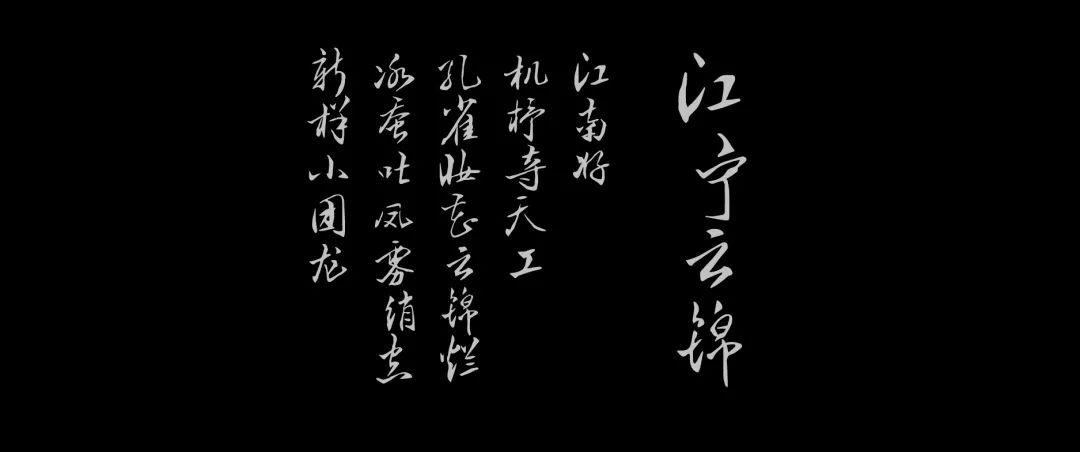 江宁云锦
江南好
机杼夺天工
孔雀妆花云锦烂
冰蚕吐凤雾绡空
新样小团龙